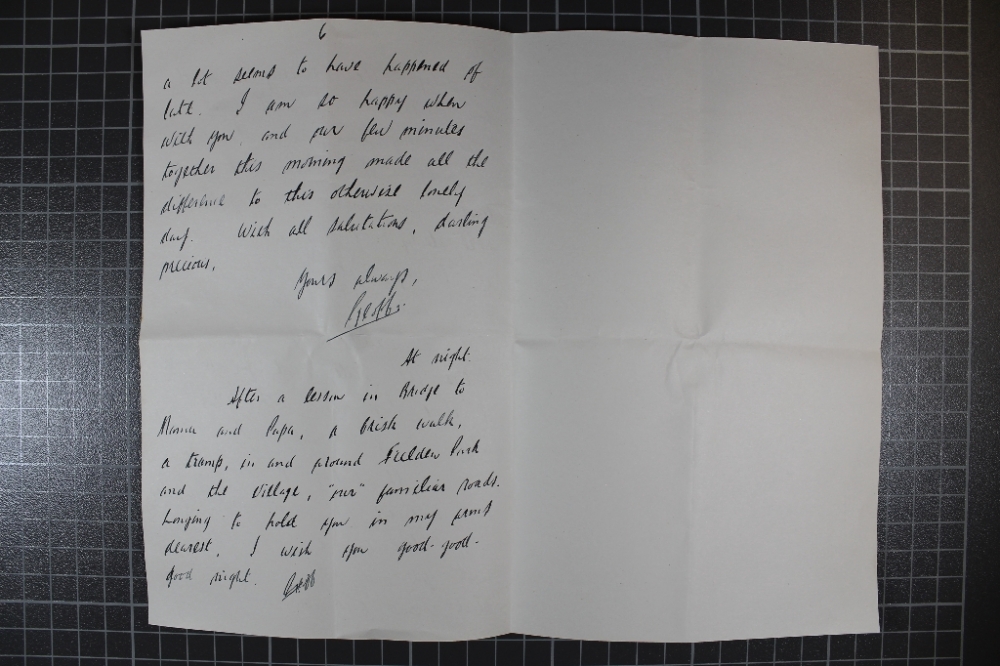 6
a lot seems to have happened of
late. I am so happy when
with you, and our few minutes
together this morning made all the
difference to this otherwise lonely
day. With all salutations, darling
precious,
Yours always,
Geoff.
At night.
After a lesson in Bridge to
Mama and Papa, a brisk walk,
a tramp, in and around Fielden Park
and the village, "our" familiar roads.
Longing to hold you in my arms
dearest, I wish you good-good-
good night. Geoff